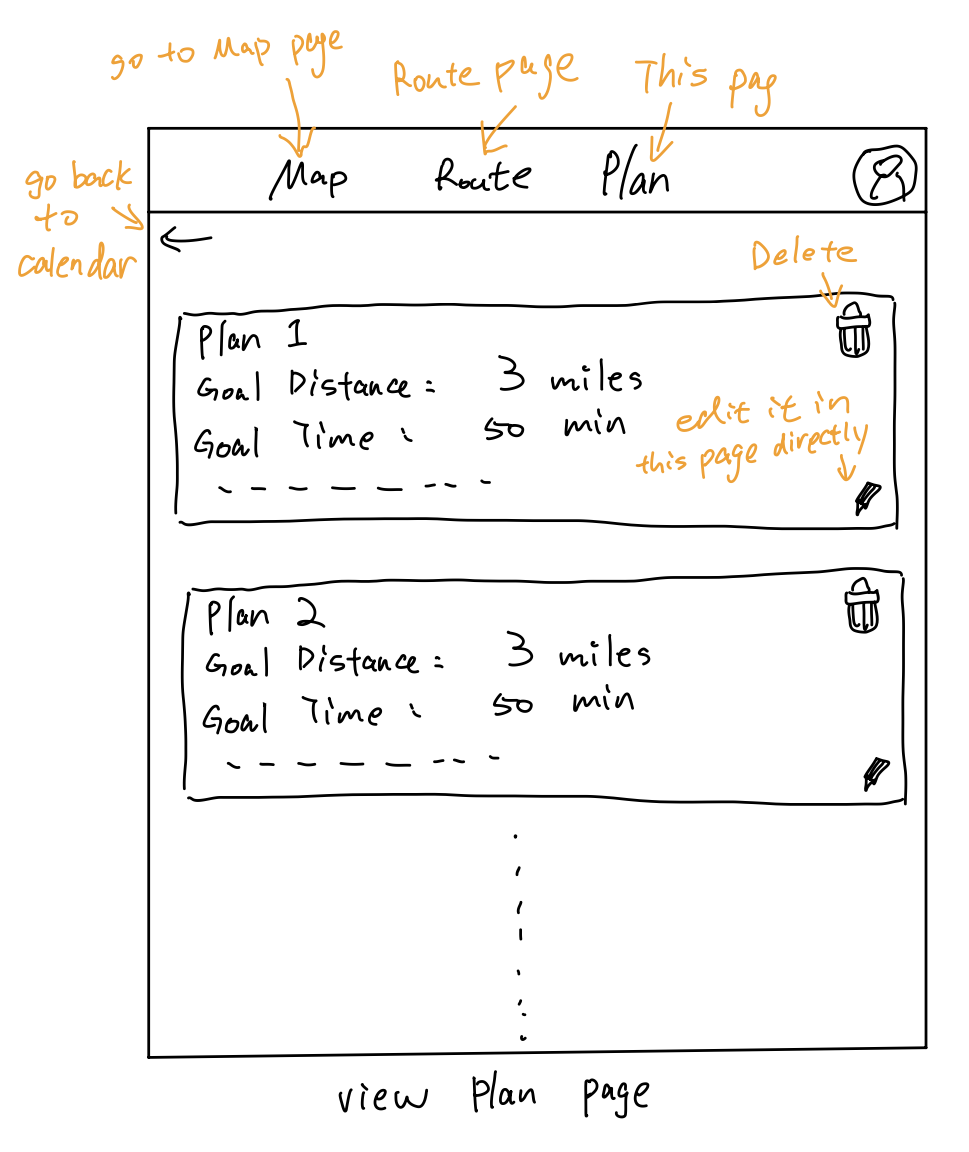 go to Map page
Route page
This pag
Map Route Plan
go back
to
calendar
Delete
Plan 1
Goal Distance: 3 miles
Goal Time: 50 min
edit it in
this page directly
Plan 2
Goal Distance: 3 miles
Goal Time: 50 min
view Plan page